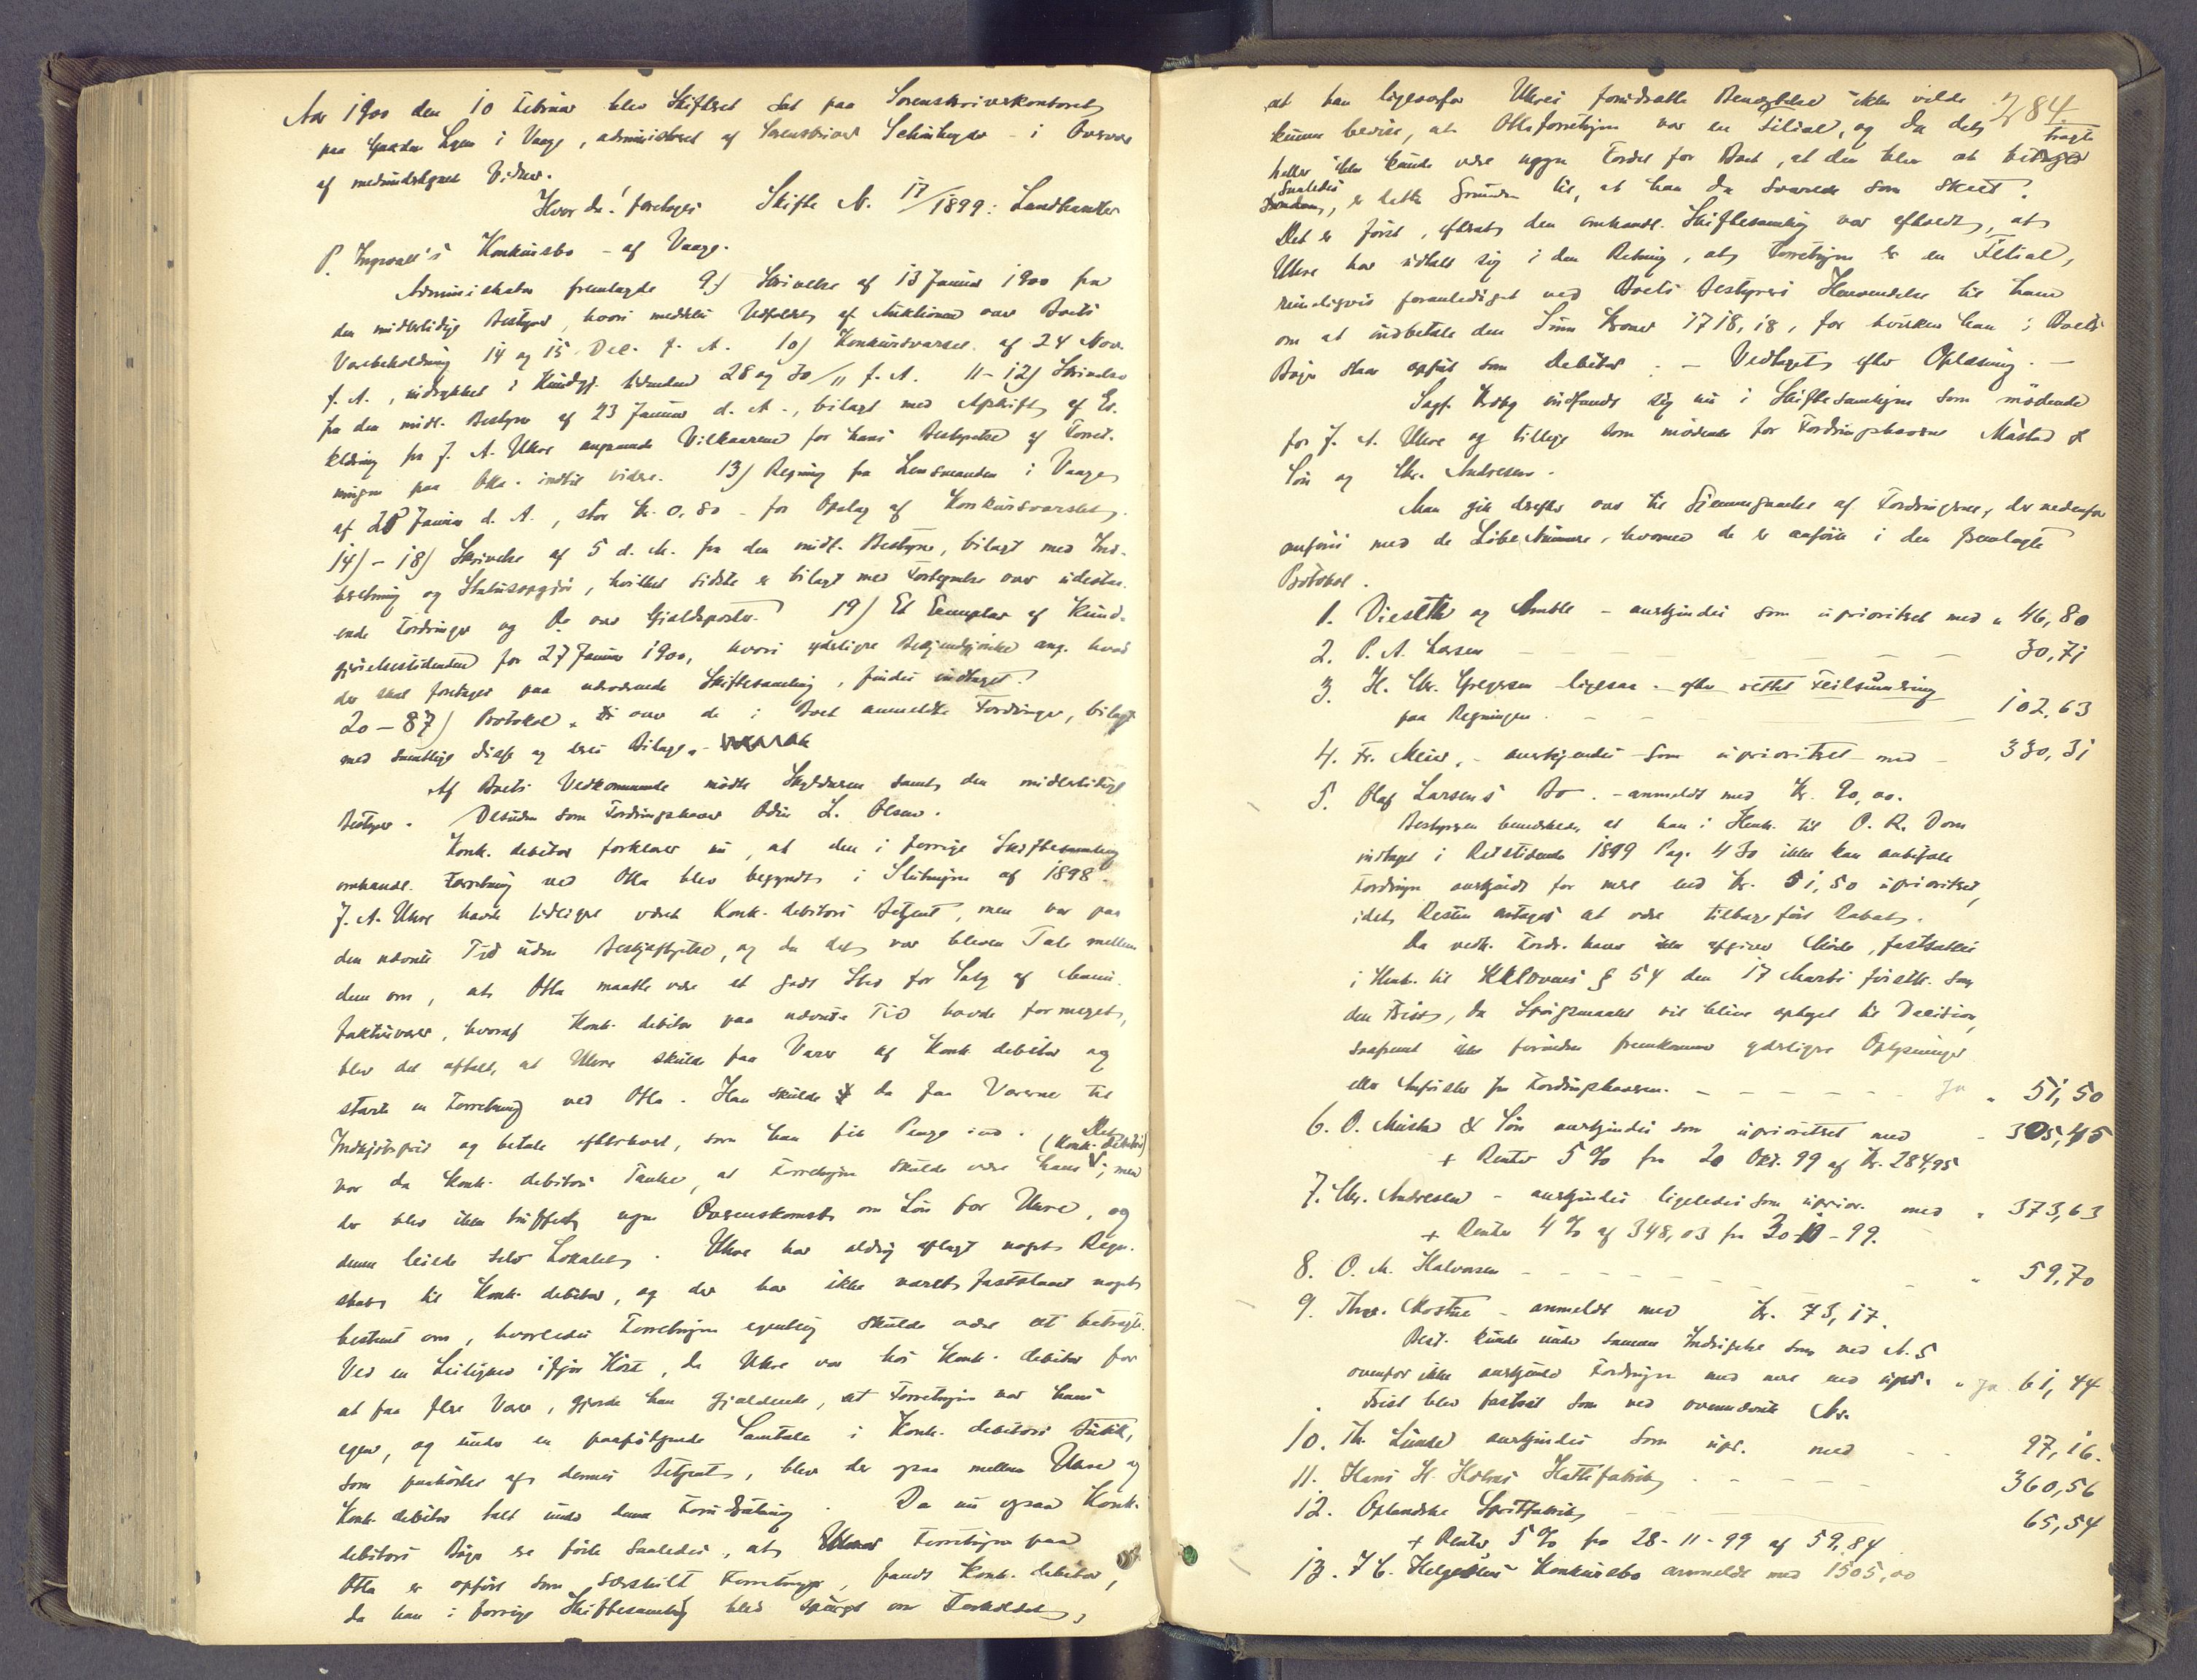 Aar 1900 den 10 Februar blev Skifteret sat paa Sorenskriverkontoret
paa Gaarden i Vaage, administreret af Sorenskriver - i Overvær
af medundertegnede Vidner.
Hvorda! foretoges Skifte N. 17/1899: Landhandler
P. Ingvald's Konkursbo - af Vaage.
Administrator fremlagde 9) Skrivelse af 13 Januar 1900 fra
den midlertidige Bestyrer, hvori meddeles Udfaldet af Auktionen over Boets
Varebeholdning 14 og 15 Dec. f. A. 10) Konkursvarsel af 24 Nov.
f. A., indrykket i Kundgj. tidenden 28 og 30/11 f. A. 11-12) Skrivelse
fra den midl. Bestyrer af 23 Januar d. A., bilagt med Afskrift af Er-
klæring fra J. A. Uhre angaaende Vilkaarene for hans Bestyrelse af Forret-
ningen paa Otta indtil videre. 13) Regning fra Lensmanden i Vaage
af 25 Januar d. A., stor Kr. 0.80 - for Opslag af Konkursvarslet.
14) - 18) Skrivelse af 5 d. M. fra den midl. Bestyrer, bilagt med Ind-
beretning og Statusopgjør, hvilket sidste er bilagt med Fortegnelse over udestaa-
ende Fordringer og Do over Gjældsposter. 19) Et Exemplar af Kund-
gjørelsestidenden for 27 Januar 1900, hvori yderligere Bekjendtgjørelse ang. hvad
der skal foretages paa nærværende Skiftesamling, findes indtaget.
20-87) Protokol over de i Boet anmeldte Fordringer, bilagt
med samtlige disse og deres Bilage.
Af Boets Vedkommende mødte Skyldneren samt den midlertidige
Bestyrer. Desuden som Fordringshaver Odin L. Olsen.
Konk. debitor forklarer nu, at den i forrige Skiftesamling
omhandl. Forretning ved Otta blev begyndt i Slutningen af 1898.
J. A. Uhre havde tidligere været Konk. debitors Betjent, men var paa
den nævnte Tid uden Beskjæftigelse, og da det var bleven Tale mellem
dem om, at Otta maatte være et godt Sted for Salg af Manu-
fakturvarer, hvoraf Konk. debitor paa nævnte Tid havde formeget,
blev det aftalt, at Uhre skulde faa Varer af Konk. debitor og
starte en Forretning ved Otta. Han skulde da faa Varerne til
Indkjøbspris og betale efterhvert, som han fik Penge ind. Det
var da Konk. debitors Tanke, at Forretningen skulde være hans (Konk. debitors); men
der blev ikke truffet nogen Overenskomst om Løn for Uhre, og
denne leiede selv Lokalet. Uhre har aldrig aflagt noget Regn-
skab til Konk. debitor, og der har ikke været fastslaaet noget
bestemt om, hvorledes Forretningen egentlig skulde være at betragte.
Ved en Leilighed ifjor Høst, da Uhre var hos Konk. debitor for
at faa flere Varer, gjorde han gjældende, at Forretningen var hans
egen, og under en paafølgende Samtale i Konk. debitors Butik,
som paahørtes af dennes Betjent, blev der ogsaa mellem Uhre og
Konk. debitor talt under denne Forudsætning. Da nu ogsaa Konk.
debitors Bøger ere førte saaledes, at Forretningen paa
Otta er opført som særskilt Forretning, fandt Konk. debitor,
da han i forrige Skiftesamling blev spurgt om Forholdet,
284.
at han ligeoverfor Uhres forudsatte Benægtelse ikke vilde
kunne bevise, at Ottaforretningen var en Filial, og da det
heller ikke kunde være nogen Fordel for Boet, at den blev at betragte
saaledes, er dette Grunden til, at han da svarede som skeet.
Det er først, efterat den omhandl. Skiftesamling var afholdt, at
Uhre har udtalt sig i den Retning, at Forretningen er en Filial,
rimeligvis foranlediget ved Boets Bestyrers Henvendelse til ham
om at indbetale den Sum Kroner 1718,18, for hvilken han i Boets
Bøger staar opført som Debitor. - Vedtaget efter Oplæsning. -
Sagf. indfandt sig nu i Skiftesamlingen som mødende
for J. A. Uhre og tillige som mødende for Fordringshaverne Mustad &
Søn og Chr. Andresen.
Man gik derefter over til Gjennemgaaelse af Fordringerne, der nedenfor
anføres med de Løbe Numere, hvormed de er anførte i den fremlagte
Protokol.
1. og Amble - anerkjendes som uprioriteret med " 46,80
2. P. A. Larsen - - - - 30,71
3. H. Chr. Gregersen ligesaa - efter rettet Feilsummering
paa Regningen - - - 102,63
4. Fr. Meier, - anerkjendes som uprioriteret med - 330,31
5. Olaf Larsens Bo. - anmeldt med Kr. 90,00.
Bestyreren bemærkede, at han i Henh. til O. R. Dom
indtaget i Retstidende 1899 Pag. 430 ikke kan anbefale
Fordringen anerkjendt for mere end Kr. 51,50 uprioriteret,
idet Resten antages at være tilbageført Rabat.
Da vedk. Fordr. haver ikke afgiver Møde, fastsattes
i Henh. til KKlovens § 54 den 17 Marts førstk. som
den Frist, da Spørgsmaalet vil blive optaget til Decision,
saafremt ikke forinden fremkommer yderligere Oplysninger
eller Anførsler fra Fordringshaveren. - - - - Ja " 51,50
6. O. Mustad & Søn anerkjendes som uprioriteret med - 305,45
+ Renter 5 % fra 20 Okt. 99 af Kr. 284,95
7. Chr. Andresen - anerkjendes ligeledes som uprior. med " 373,63
+ Renter 4 % af 348,03 fra 30-10-99.
8. O. M. Halvorsen - - - - " 59,70
9. Thor. Mostue - anmeldt med Kr. 73,17.
Best. kunde under samme Indsigelse som ved N. 5
ovenfor ikke anerkjende Fordringen med mere end upr. " Ja 61,44
Frist blev fastsat som ved ovennævnte No.
10. Th. Lunde anerkjendes som upr. med - - 97,16.
11. Hans H. Holms Hattefabrik - - - 360,56
12. Oplandske Spritfabrik - - 65,54
+ Renter 5 % fra 28-11-99 af 59,84
13. Konkursbo anmeldt med 1505,00